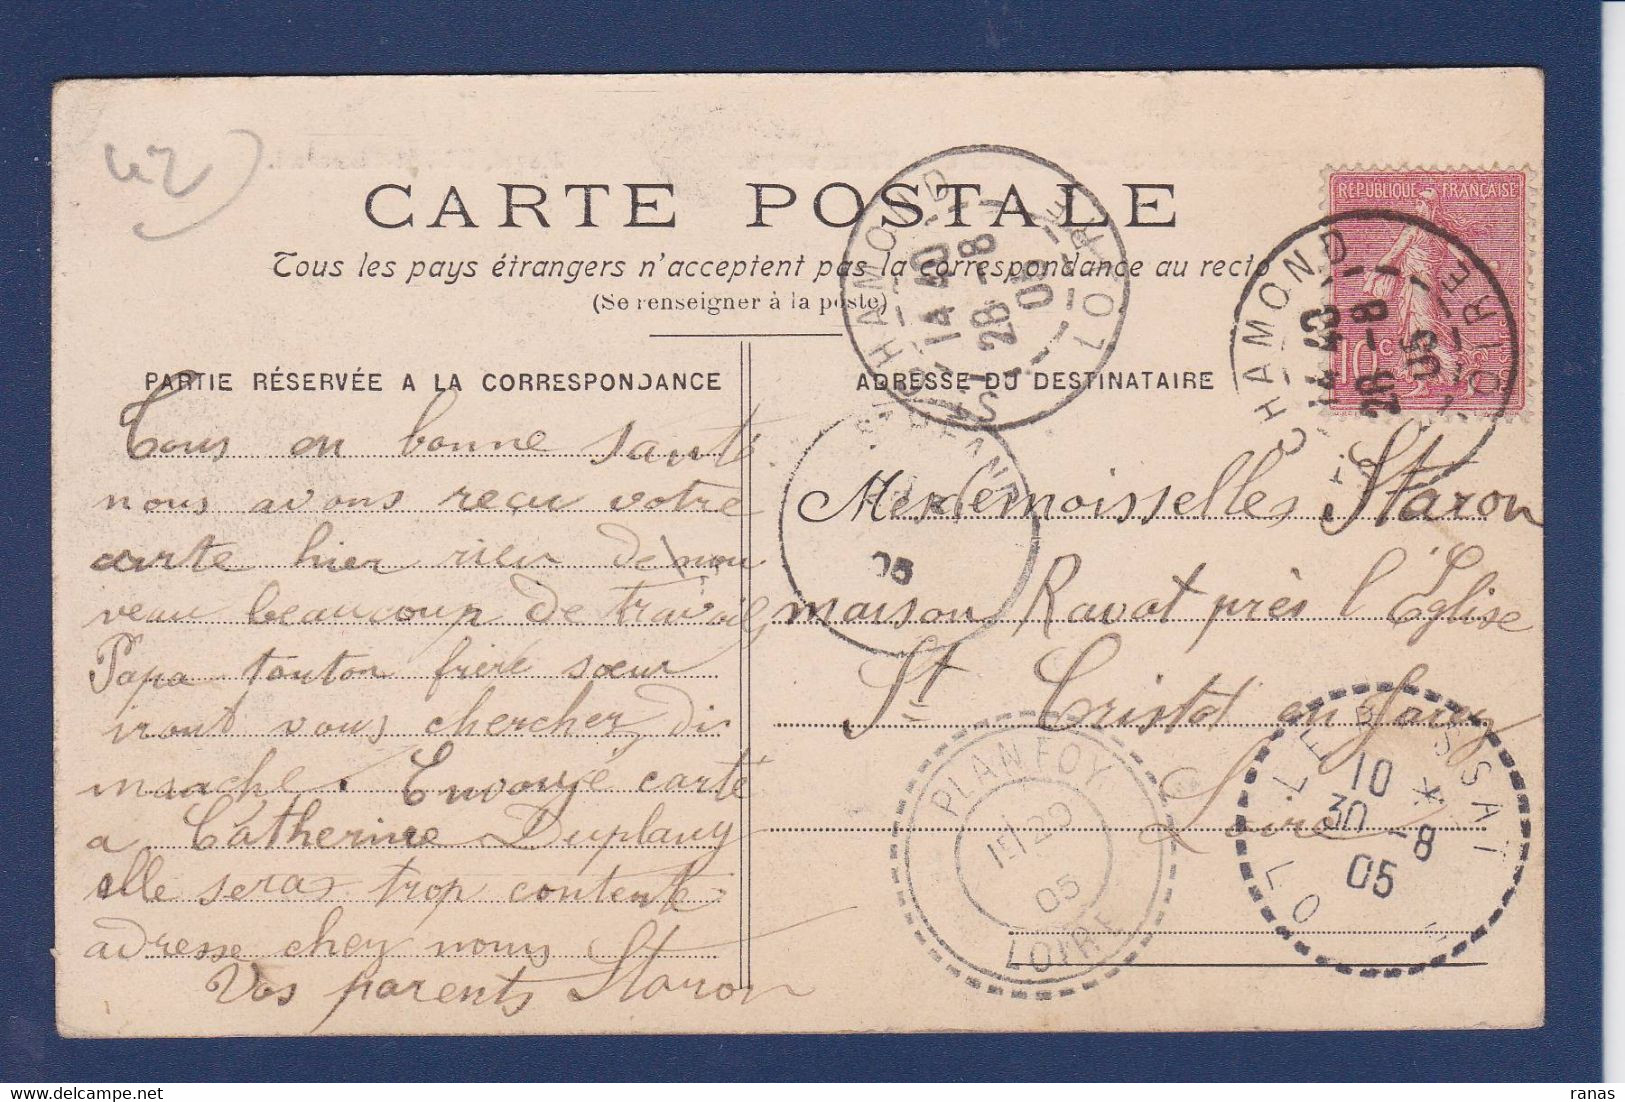 42
CARTE POSTALE
Tous les pays étrangers n'acceptent pas la correspondance au recto
(Se renseigner à la poste)
PARTIE RÉSERVÉE A LA CORRESPONDANCE
Tous en bonne santé
nous avons recu votre
carte hier rien de nou
veau beaucoup de travail
Papa tonton frère sœur
iront vous chercher di
manche. Envoyé carte
a Catherine Duplany
elle seras trop contente
adresse chez nous
Vos parents Staron
ADRESSE DU DESTINATAIRE
Mesdemoisselles Staron
maison Ravat près l'Eglise
St Cristol en Jarez
Loire
RÉPUBLIQUE FRANÇAISE
10 c
ST CHAMOND LOIRE
14 40
28 -8
05
ST CHAMOND LOIRE
14 40
28 -8
05
05
PLANFOY
29
05
LOIRE
LE BESSAT LOIRE
10
30 -8
05
ranas